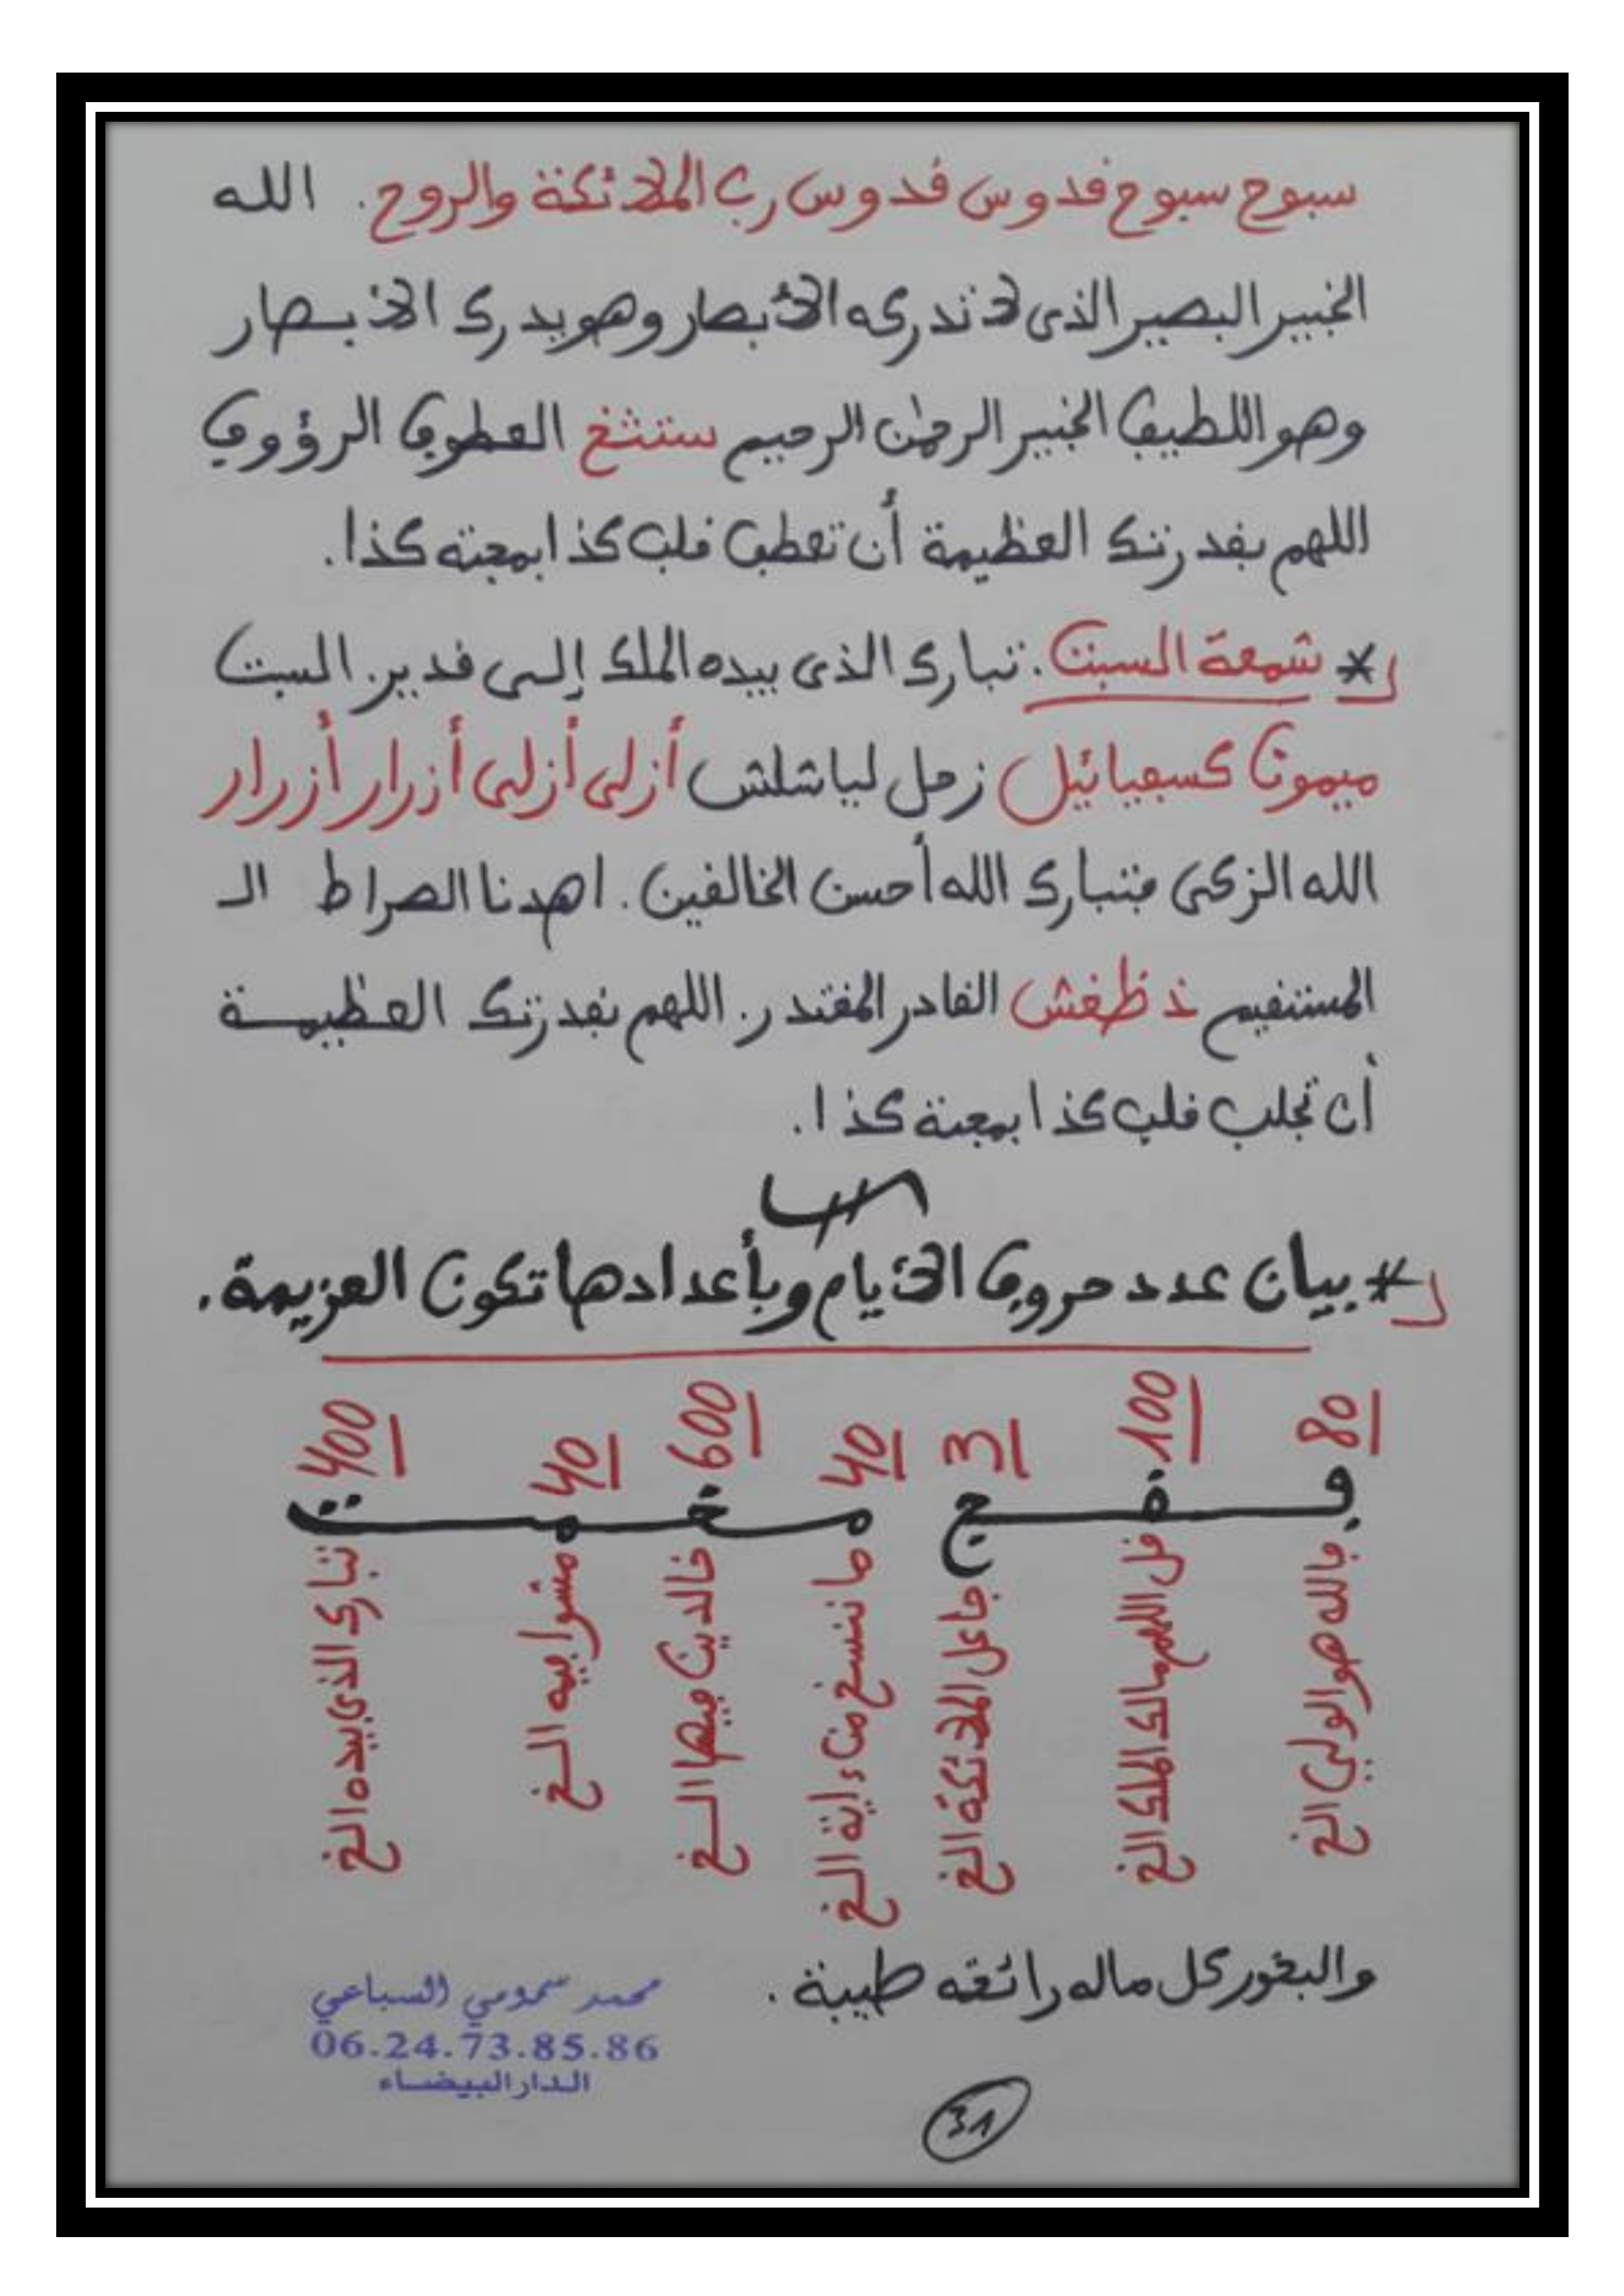 سبوح سبوح قدوس قدوس رب الملائكة والروح. الله
الخبير البصير الذى لا تدركه الأبصار وهو يدرك الأبصار
وهو اللطيف الخبير الرحمن الرحيم ستثغ العطوف الرؤوف
اللهم بقدرتك العظيمة أن تعطف قلب كذا بمحبة كذا.
* شمعة السبت. تبارك الذى بيده الملك إلى قدير. السبت
ميمون كسفيائيل زحل لياشلش أزلى أزلى أزرار أزرار
الله الزكى فتبارك الله أحسن الخالقين. اهدنا الصراط الـ
المستقيم ذظغش القادر المقتدر. اللهم بقدرتك العظيمـة
أن تجلب قلب كذا بمحبة كذا.
* بيان عدد حروف الأيام وبأعدادها تكون العزيمة.
80 100 3 40 600 40 400
فـقـج مـخـمـت
فالله هو الولي الخ
قل اللهم مالك الملك الخ
جاعل الملائكة الخ
ما ننسخ من ءاية الخ
خالدين فيها الـخ
مشوا فيه الـخ
تبارك الذي بيده الخ
والبخور كل ماله رائحة طيبة.
محمد سمومي السباعي
06.24.73.85.86
الدار البيضاء
31